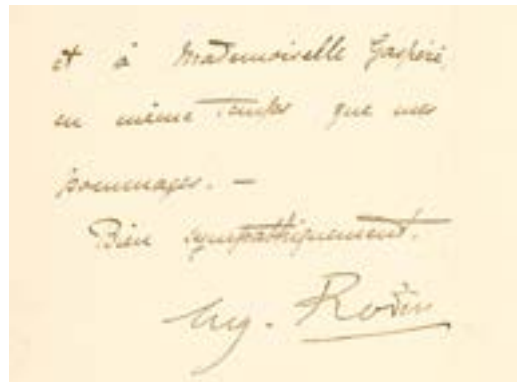 et à Mademoiselle Gaspéré,
en même temps que mes
hommages. —
Bien sympathiquement.
Aug. Rodin